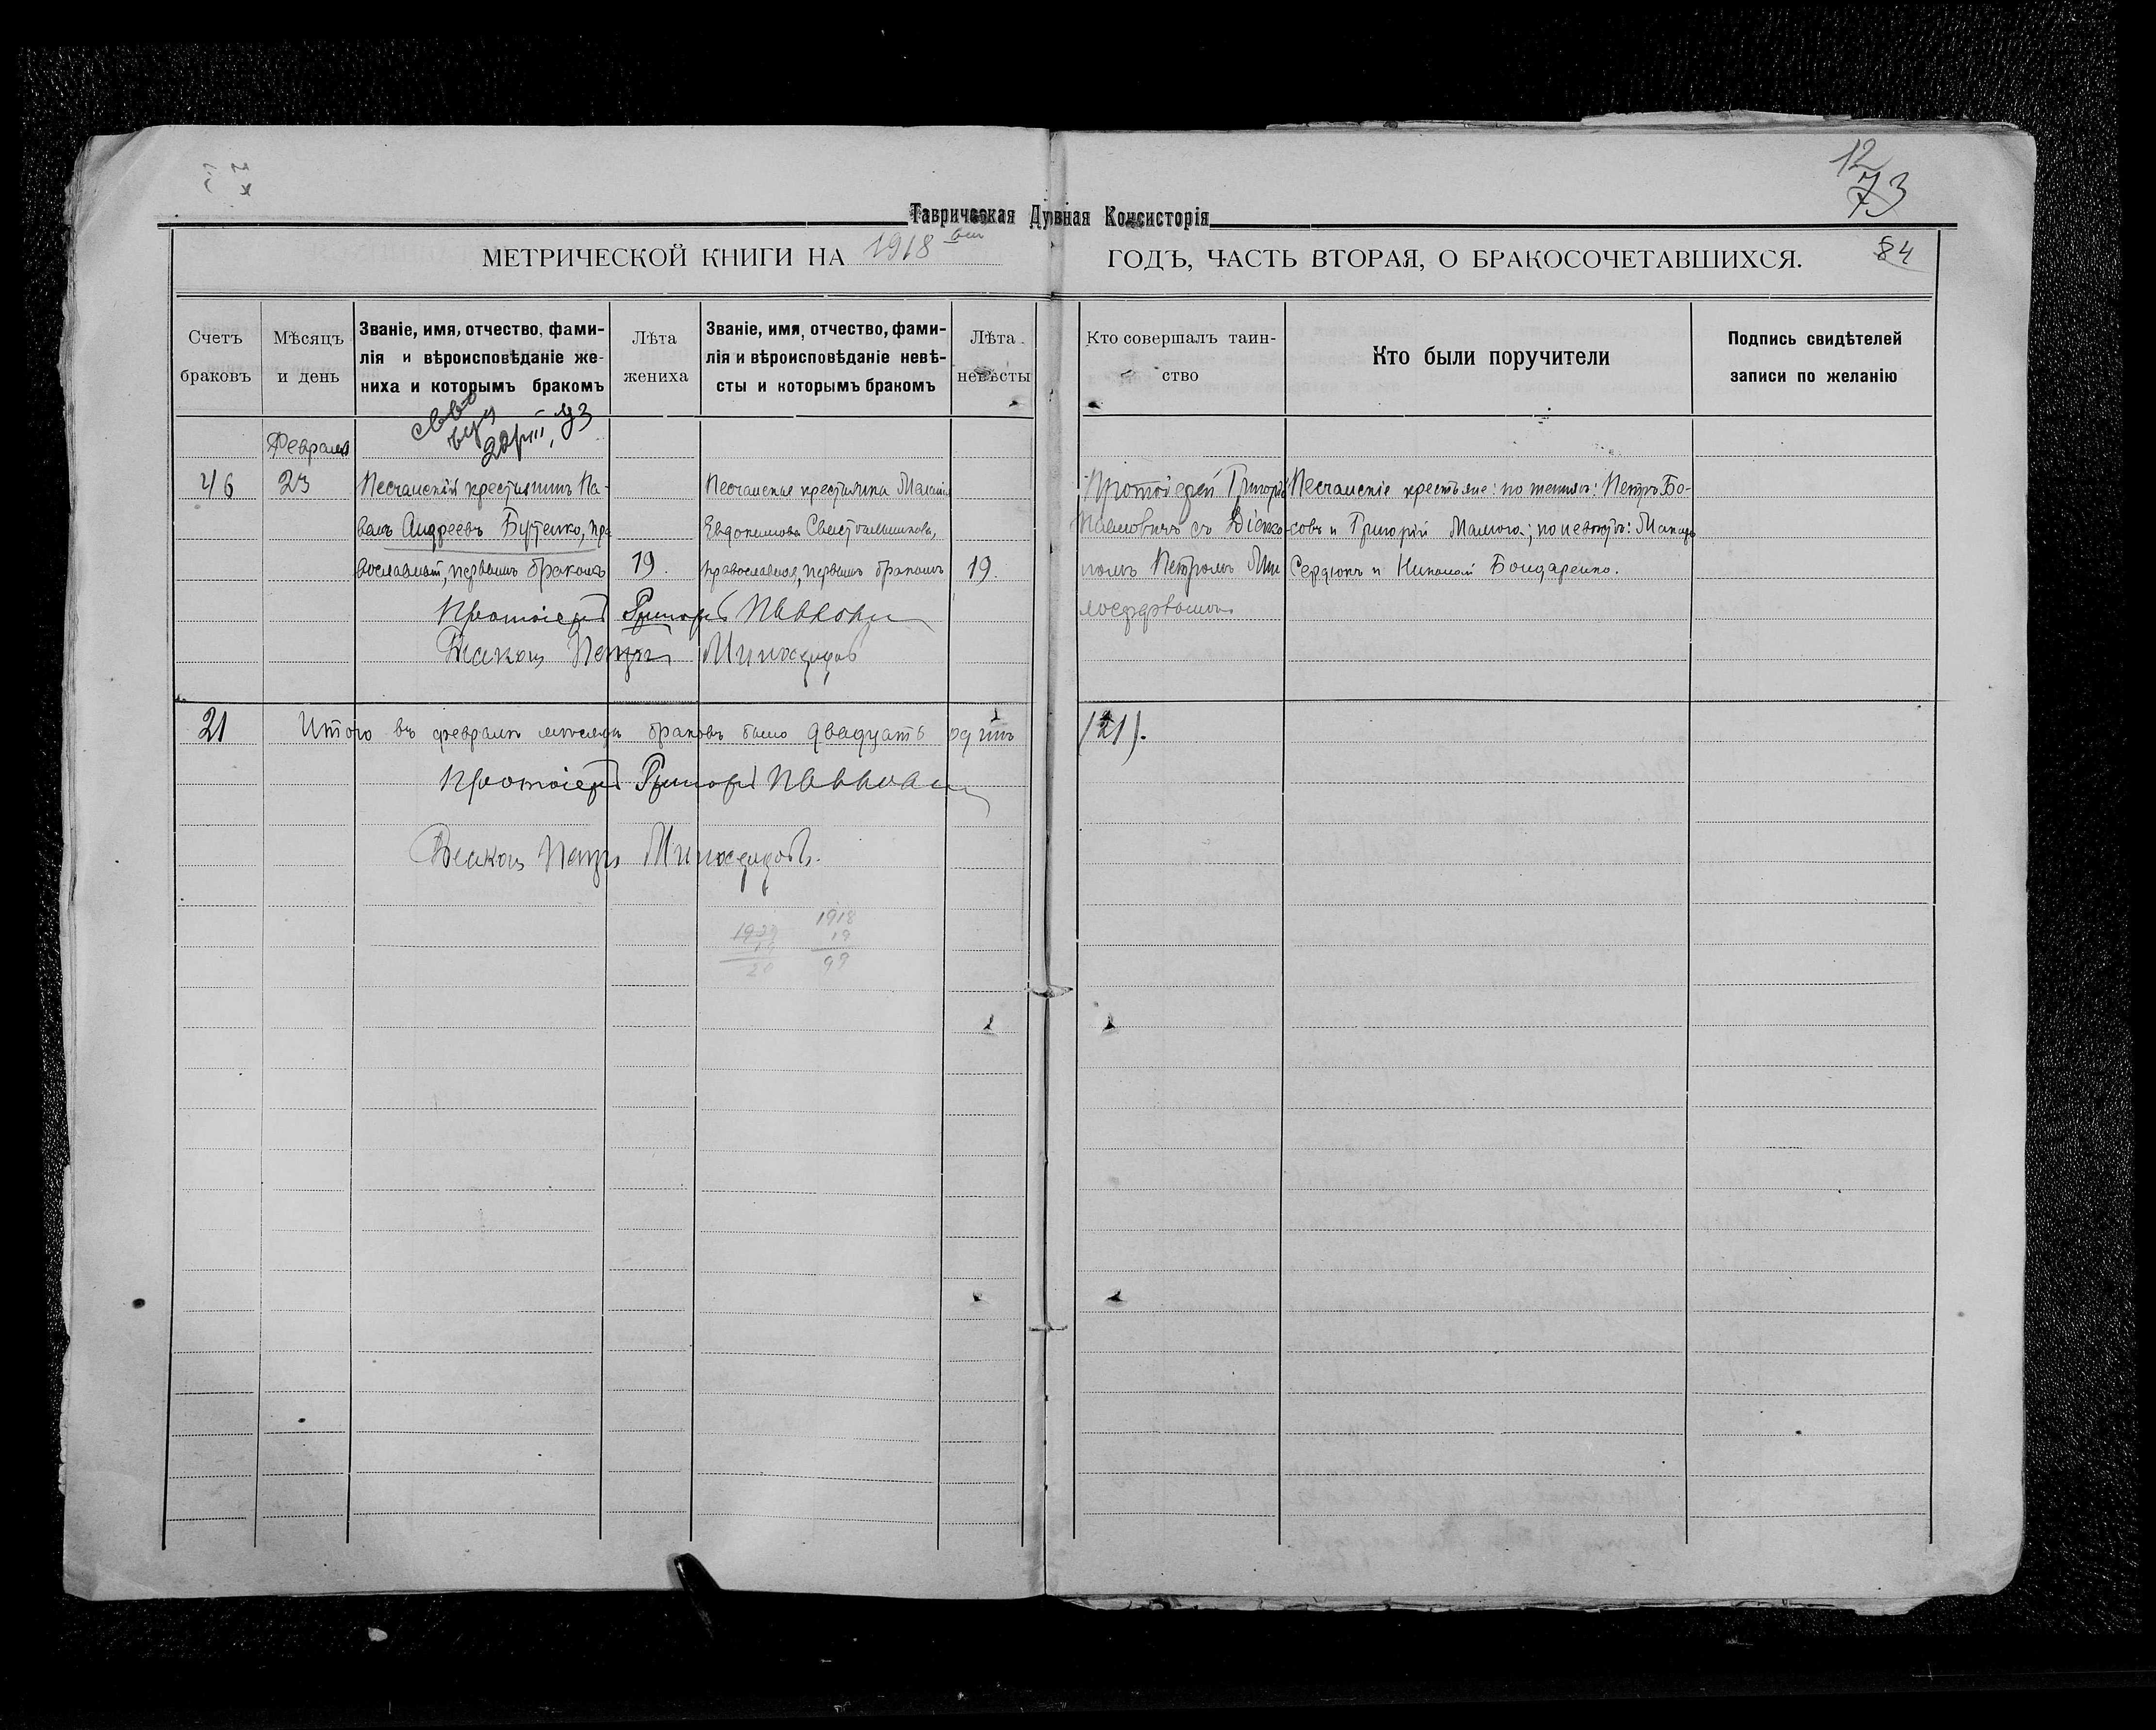 12
73
Таврическая Духовная Консисторія
МЕТРИЧЕСКОЙ КНИГИ НА 1918 ГОДЪ, ЧАСТЬ ВТОРАЯ, О БРАКОСОЧЕТАВШИХСЯ.
84
Счетъ браковъ
Мѣсяцъ и день
Званіе, имя, отчество, фами-
лія и вѣроисповѣданіе же-
ниха и которымъ бракомъ
Лѣта жениха
Званіе, имя, отчество, фами-
лія и вѣроисповѣданіе невѣ-
сты и которымъ бракомъ
Лѣта невѣсты
Кто совершалъ таин-
ство
Кто были поручители
Подпись свидѣтелей
записи по желанію
Февраль
46
23
Песчанскій крестьянинъ Па-
велъ Андреевъ Бутенко, пра
вославный, первымъ бракомъ
19.
Песчанская крестьянка
Евдокимова
православная, первымъ бракомъ
19.
Протоіерей Григорій
съ Діако-
номъ Петромъ Ми
лосердовымъ
Песчанскіе крестьяне: по женихѣ: Петръ Бо-
совъ и Григорій по невѣстѣ:
Сердюкъ и Николай Бондаренко.
Протоіерей Григорій
Діаконъ Петръ Милосердовъ
21
Итого въ февралѣ мѣсяцѣ браковъ было двадцать одинъ (21).
Протоіерей Григорій
Діаконъ Петръ Милосердовъ.
1918
19
99